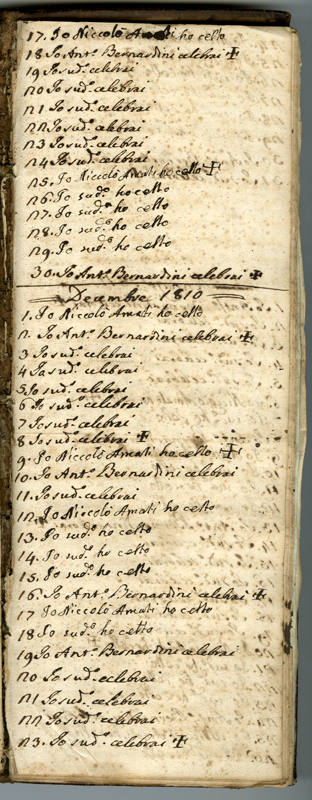 17. Io Niccolò Amati ho cello
18 Io Ant.º Bernardini celebrai ✝
19 Io sud.º celebrai
20 Io sud.º celebrai
21 Io sud.º celebrai
22 Io sud.º celebrai
23 Io sud.º celebrai
24 Io sud.º celebrai
25. Io Niccolò Amati ho cello ✝
26. Io sud.º ho cello
27. Io sud.º ho cello
28. Io sud.º ho cello
29. Io sud.º ho cello
30. Io Ant.º Bernardini celebrai ✝
Decembre 1810
1. Io Niccolò Amati ho cello
2. Io Ant.º Bernardini celebrai ✝
3 Io sud.º celebrai
4 Io sud.º celebrai
5 Io sud.º celebrai
6 Io sud.º celebrai
7 Io sud.º celebrai
8 Io sud.º celebrai ✝
9. Io Niccolò Amati ho cello ✝
10. Io Ant.º Bernardini celebrai
11. Io sud.º celebrai
12. Io Niccolò Amati ho cello
13. Io sud.º ho cello
14. Io sud.º ho cello
15. Io sud.º ho cello
16. Io Ant.º Bernardini celebrai ✝
17 Io Niccolò Amati ho cello
18 Io sud.º ho cello
19 Io Ant.º Bernardini celebrai
20 Io sud.º celebrai
21 Io sud.º celebrai
22 Io sud.º celebrai
23. Io sud.º celebrai ✝